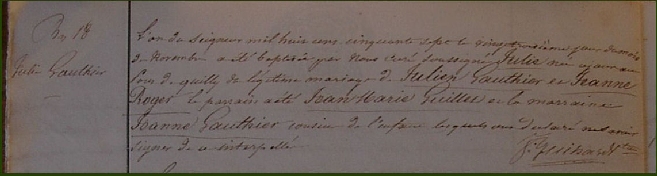 Bp 18
Julie Gauthier
L'an du Seigneur mil huit cent cinquante sept le vingt troisième jour du mois
de Novembre a été baptisée par Nous curé soussigné Julie née ce jour au
de légitime mariage de Julien Gauthier et Jeanne
Roger le parrain a été Jean Marie Guilles et la marraine
Jeanne Gauthier cousine de l'enfant lesquels ont déclaré ne savoir
signer de ce interpellé